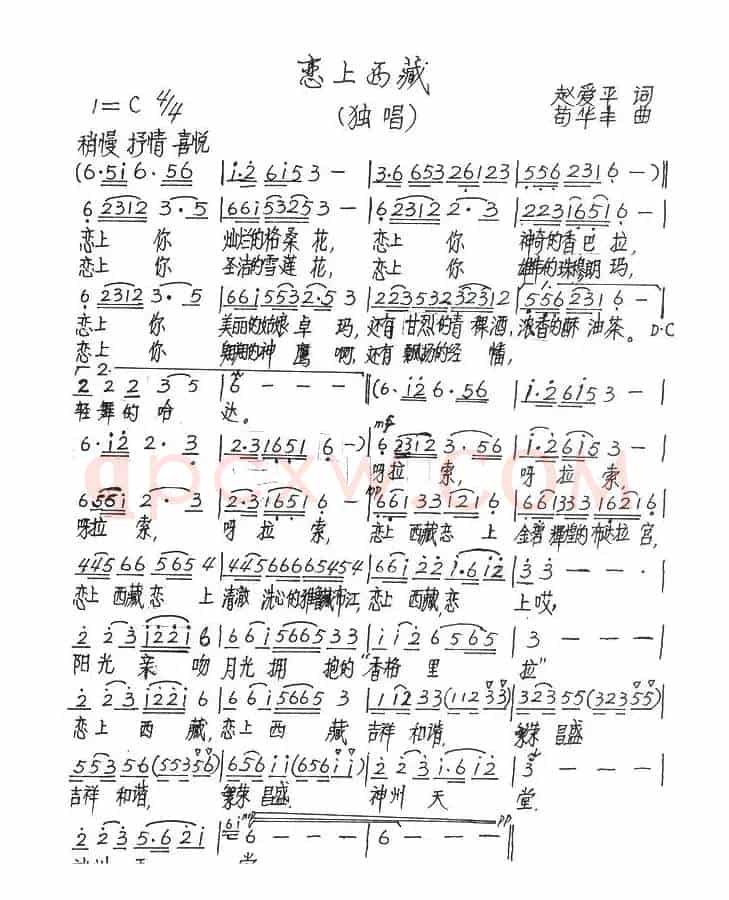 恋上西藏
(独唱)
1=C 4/4
赵爱平 词
苟华丰 曲
稍慢 抒情 喜悦
(6·5i 6·56 | i·2 6i53 - | 3·6 653 26123 | 556 2316 -)‖
6 2312 3·5 | 66i53253 - | 6 2312 2·3 | 22316516 - |
恋上 你 灿烂的格桑花, 恋上 你 神奇的香巴拉,
恋上 你 圣洁的雪莲花, 恋上 你 雄伟的珠穆朗玛,
6 2312 3·5 | 66i5532·53 | 22353232312 | 5562316 - |
恋上 你 美丽的姑娘 卓玛, 还有 甘烈的青稞酒, 浓香的酥油茶。D·C
恋上 你 的神鹰啊, 还有 飘扬的经幡,
2.
2 2 2 3 5 | 6 - - - ‖(6·i2 6·56 | i·2 6i53 - |
轻舞的哈 达。
mf
6·i2 2·3 | 2·316516 -) | 6 2312 3·56 | i·2 6i53 |
呀拉 索, 呀 拉 索,
6 55i 2·3 | 2·3 1651 6 | 661 333 1216 | 66133316216 |
呀拉 索, 呀 拉 索, 恋上 西藏 恋 上 金碧辉煌的布达拉宫,
mp
44566 5654 | 44566665454 | 66i22 i·6i2 | 3 3 - - |
恋上 西藏 恋 上 清澈 洗心的雅鲁藏布江, 恋上 西藏, 恋 上哎,
2 2 3 i22i 6 | 66i566533 | i i i 2 6565 | 3 - - - |
阳光 亲 吻 月光 拥 抱的“香格里 拉”
2 2 3 i22i 6 | 66i5665 3 | 11233(11233) | 32355(32355) |
恋上 西 藏, 恋上 西 藏 吉祥 和谐, 繁荣 昌盛
55356(55356) | 656ii(656ii) | 2 2 3 i·6i2 | 3 - - - |
吉祥 和谐, 繁荣 昌盛. 神州 天 堂.
mp
pp
2 2 3 5·6 2i | 6 - - - | 6 - - - ‖
神州 天 堂
qpcxw.COM